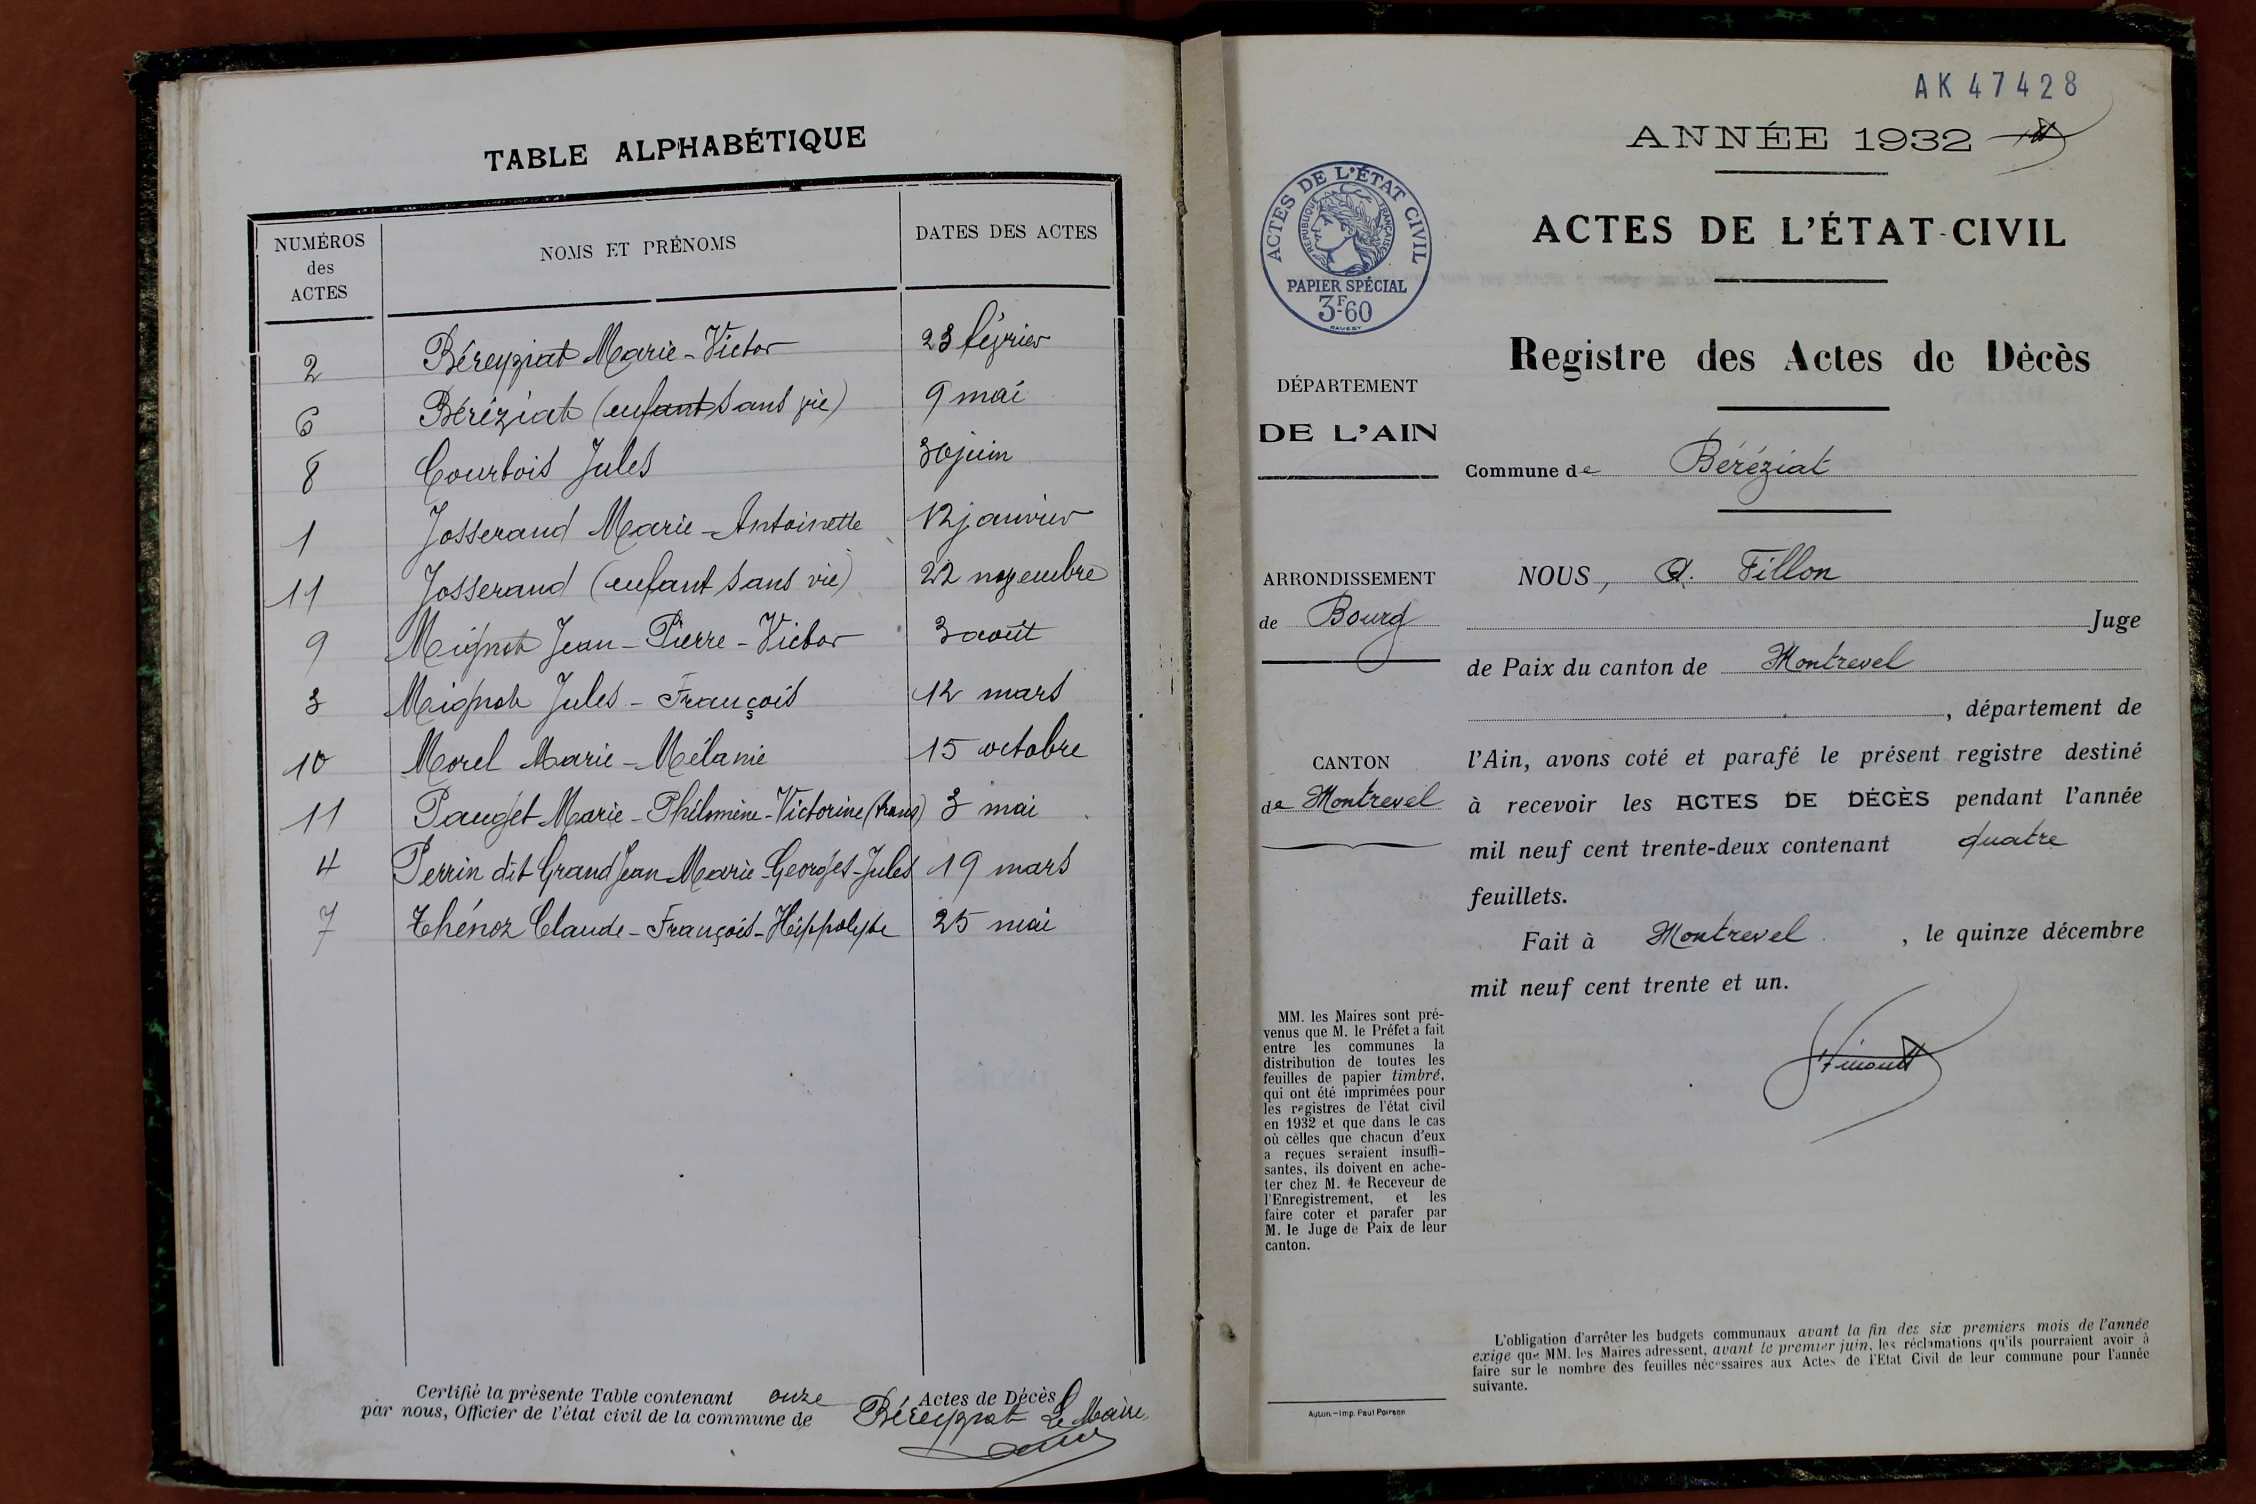 TABLE ALPHABÉTIQUE
NUMÉROS des ACTES NOMS ET PRÉNOMS DATES DES ACTES
2 Béreyziat Marie-Victor 23 février
6 Béréziat (enfant sans vie) 9 mai
8 Courtois Jules 30 juin
1 Josserand Marie-Antoinette 12 janvier
11 Josserand (enfant sans vie) 22 novembre
9 Mignot Jean-Pierre-Victor 3 août
3 Mignot Jules-François 12 mars
10 Morel Marie-Mélanie 15 octobre
11 Pauget Marie-Philomène-Victorine (trans) 3 mai
4 Perrin dit Grand Jean Marie-Georges-Jules 19 mars
7 Thénoz Claude-François-Hippolyte 25 mai
Certifié la présente Table contenant onze Actes de Décès
par nous, Officier de l'état civil de la commune de Béreyziat Le Maire
AK 47428
ANNÉE 1932
ACTES DE L'ÉTAT CIVIL
RÉPUBLIQUE FRANÇAISE
PAPIER SPÉCIAL
3F60
ACTES DE L'ÉTAT-CIVIL
Registre des Actes de Décès
DÉPARTEMENT
DE L'AIN
Commune de Béréziat
ARRONDISSEMENT
de Bourg
CANTON
de Montrevel
NOUS, A. Fillon
Juge
de Paix du canton de Montrevel
, département de
l'Ain, avons coté et parafé le présent registre destiné
à recevoir les ACTES DE DÉCÈS pendant l'année
mil neuf cent trente-deux contenant quatre
feuillets.
Fait à Montrevel, le quinze décembre
mil neuf cent trente et un.
MM. les Maires sont pré-
venus que M. le Préfet a fait
entre les communes la
distribution de toutes les
feuilles de papier timbré,
qui ont été imprimées pour
les registres de l'état civil
en 1932 et que dans le cas
où celles que chacun d'eux
a reçues seraient insuffi-
santes, ils doivent en ache-
ter chez M. le Receveur de
l'Enregistrement, et les
faire coter et parafer par
M. le Juge de Paix de leur
canton.
L'obligation d'arrêter les budgets communaux avant la fin des six premiers mois de l'année
exige que MM. les Maires adressent, avant le premier juin, les réclamations qu'ils pourraient avoir à
faire sur le nombre des feuilles nécessaires aux Actes de l'Etat Civil de leur commune pour l'année
suivante.
Autun.-Imp. Paul Poirson